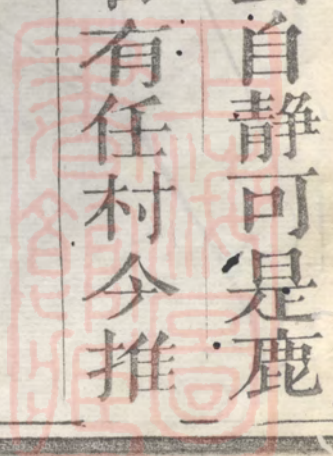 自静可是鹿
有任村今推